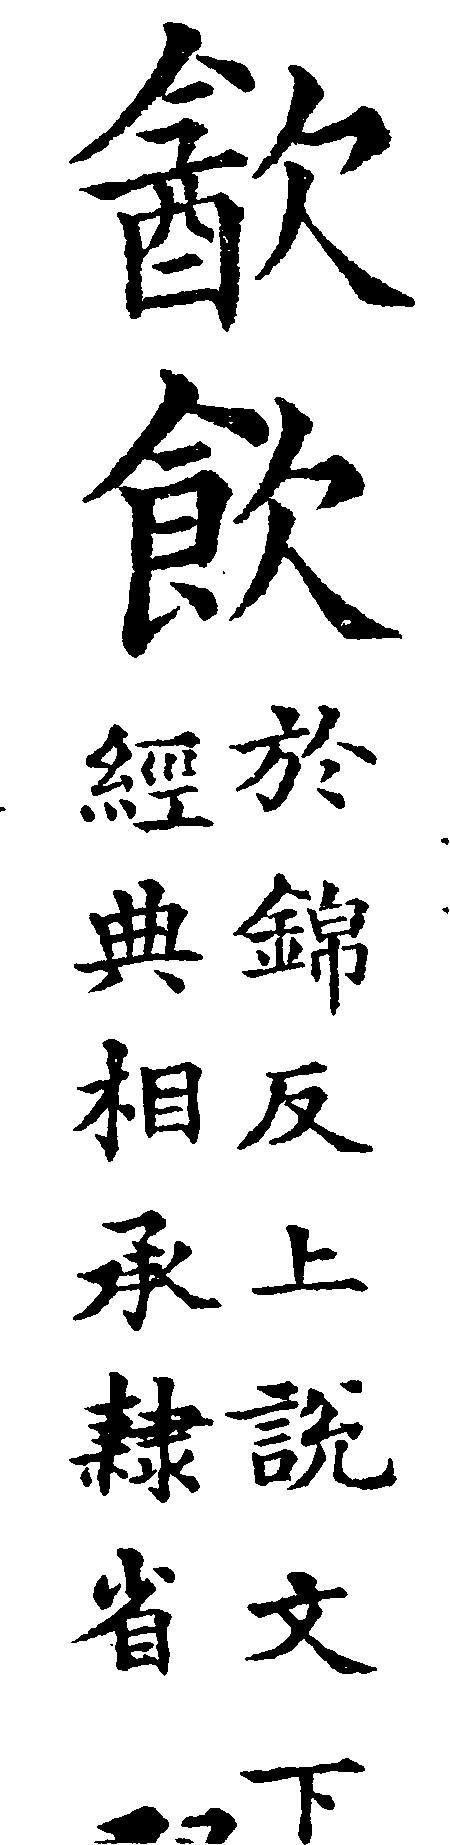 㱃飲
於錦反上說文下
經典相承隸省